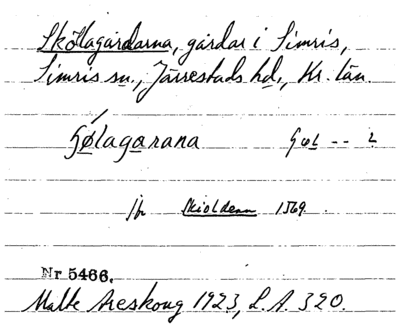 Sköllagårdarna, gårdar i Simris,
Simris sn., Järrestads hd., Kr. län.
lagarana
jfr Skioldenn 1569.
Nr 5466.
Malte Areskoug 1923, L.A. 320.